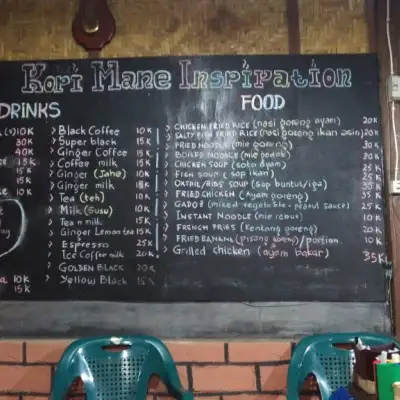 Kopi Mane Inspiration
DRINKS
10K
30K
40K
15K
15K
15K
10K
10K
15K
Black Coffee 10K
Super black 15K
Ginger Coffee 15K
Coffee milk 15K
Ginger (Jahe) 10K
Ginger milk 15K
Tea (teh) 10K
Milk (Susu) 10K
Tea n milk 15K
Ginger Lemon tea 15K
Espresso 25K
Ice Coffee milk 20K
GOLDEN BLACK 20K
Yellow Black 15K
FOOD
CHICKEN FRIED RICE (nasi goreng ayam) 20K
SALTY FISH FRIED RICE (nasi goreng ikan asin) 20K
FRIED NOODLE (mie goreng) 30K
BOILED NOODLE (mie godok) 30K
CHICKEN SOUP (soto ayam) 25K
FISH SOUP (sop ikan) 25K
OXTAIL/RIBS SOUP (sop buntut/iga) 30K
FRIED CHICKEN (Ayam goreng) 35K
GADO2 (mixed vegetable + peanut sauce) 25K
INSTANT NOODLE (mie rebus) 10K
FRENCH FRIES (Kentang goreng) 20K
FRIED BANANA (pisang goreng)/portion 10K
Grilled chicken (ayam bakar) 35K